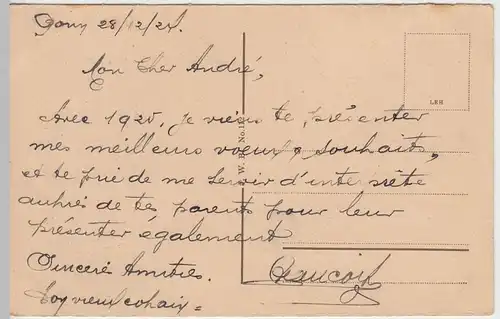 Gouy 28/12/24.
Mon Cher André,
LEH
Avec 1925, je viens te présenter
mes meilleurs voeux & souhaits,
et te prie de me servir d'interprète
auprès de tes parents pour leur
présenter également
Sincère Amitiés.